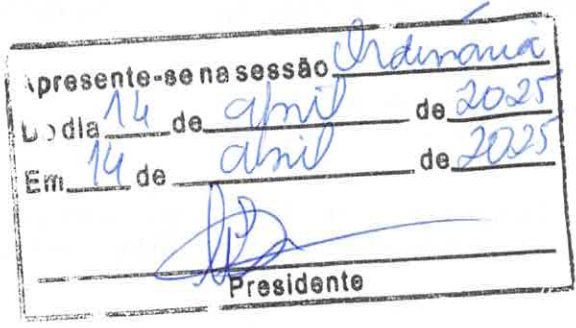 Apresente-se na sessão Ordinária
Do dia 14 de abril de 2025
Em 14 de abril de 2025
Presidente